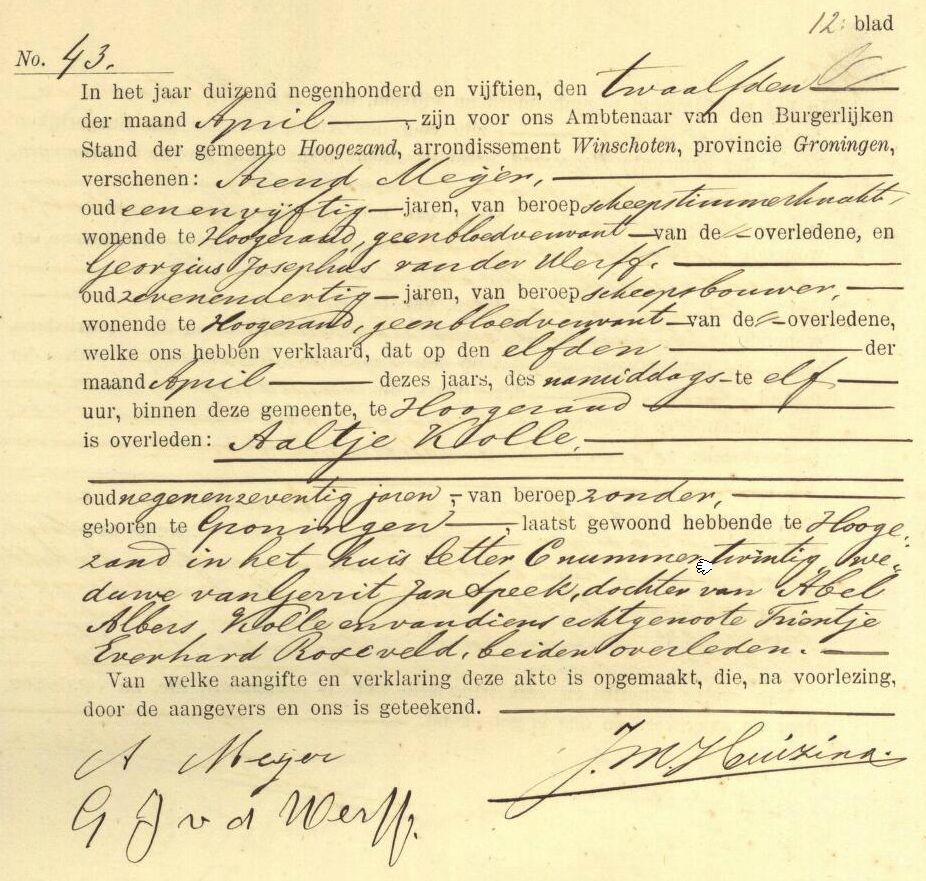 12. blad
No. 43.
In het jaar duizend negenhonderd en vijftien, den twaalfden
der maand April, zijn voor ons Ambtenaar van den Burgerlijken
Stand der gemeente Hoogezand, arrondissement Winschoten, provincie Groningen,
verschenen: Arend Meijer,
oud eenenvijftig jaren, van beroep scheepstimmerknecht,
wonende te Hoogezand, geen bloedverwant van de overledene, en
Georgius Josephus van der Werff.
oud zevenendertig jaren, van beroep scheepsbouwer,
wonende te Hoogezand, geen bloedverwant van de overledene,
welke ons hebben verklaard, dat op den elfden der
maand April dezes jaars, des namiddags te elf
uur, binnen deze gemeente, te Hoogezand
is overleden: Aaltje Kolle,
oud negenenzeventig jaren, van beroep zonder,
geboren te Groningen, laatst gewoond hebbende te Hooge-
zand in het huis letter C nummer twintig, we-
duwe van Gerrit Jan Speek, dochter van Abel
Albers Kolle en van diens echtgenoote Trientje
Everhard Roseveld, beiden overleden.
Van welke aangifte en verklaring deze akte is opgemaakt, die, na voorlezing,
door de aangevers en ons is geteekend.
A Meijer
J. M. Huizinga.
G J v d Werff.